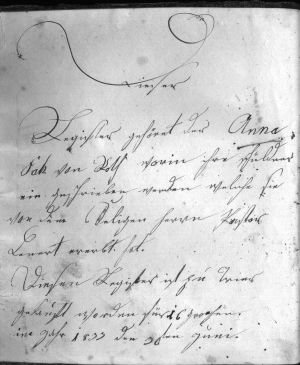 Dieses
Register gehöret der Anna
Fak von Roth worin ihre Schulden
ein geschrieben werden welche sie
von dem Seligen herrn Pastor
Lenert ererbt hat.
Dieser Register ist zu Trier
gekauft worden für 16 groschen.
im Jahr 1833 den 26ten Juni.